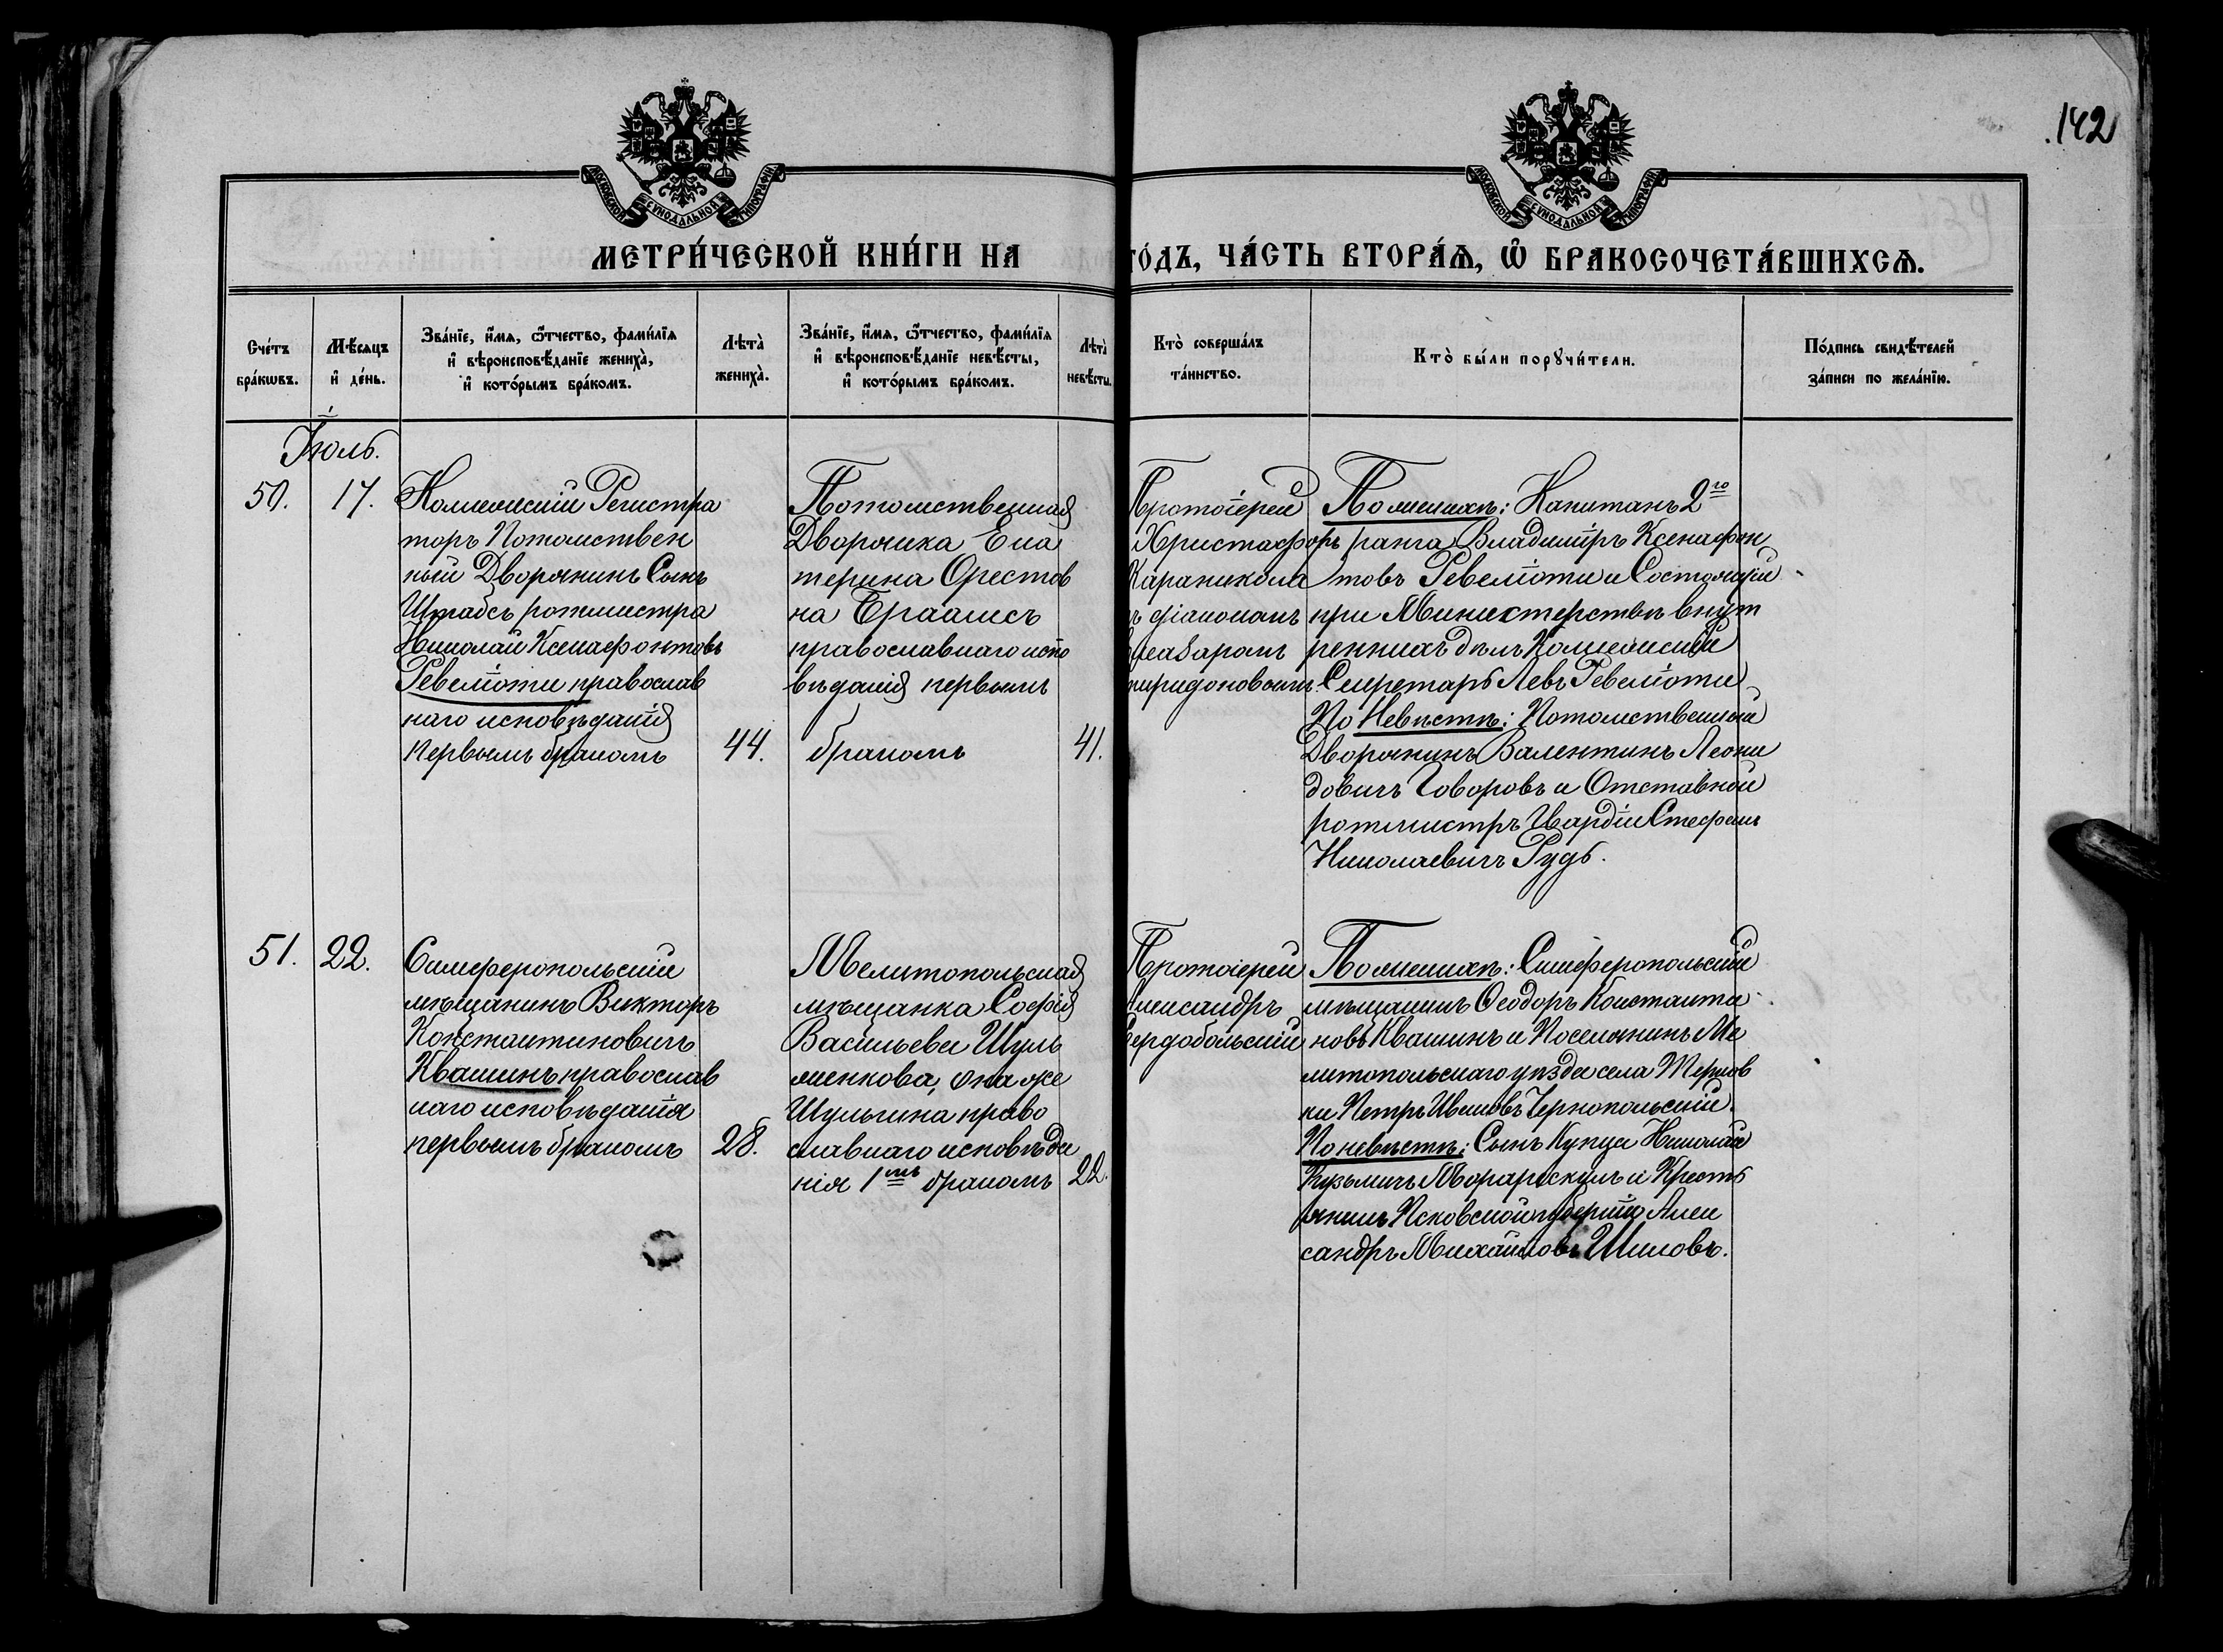 142
МОСКОВСКОЙ СѴНОДАЛЬНОЙ ТИПОГРАФІИ
МОСКОВСКОЙ СѴНОДАЛЬНОЙ ТИПОГРАФІИ
МЕТРИ́ЧЕСКОЙ КНИ́ГИ НА
ГО́ДЪ, ЧА́СТЬ ВТОРА́Ѧ, Ѽ БРАКОСОЧЕТА́ВШИХСѦ.
Сче́тъ
бра́кѡвъ.
Мѣ́сяцъ
и҆ де́нь.
Зва́нїе, и҆́мѧ, ѻ҆́тчество, фами́лїѧ
и҆ вѣроисповѣ́данїе жениха̀,
и҆ кото́рымъ бра́комъ.
Лѣ́та̀
жениха̀.
Зва́нїе, и҆́мѧ, ѻ҆́тчество, фами́лїѧ
и҆ вѣроисповѣ́данїе невѣ́сты,
и҆ кото́рымъ бра́комъ.
Лѣ́та̀
невѣ́сты.
Кто̀ соверша́лъ
та́инство.
Кто̀ бы́ли порꙋчи́тели.
По́дпись свидѣ́телей
за́писи по жела́нїю.
Іюль.
50.
17.
Коллежскій Регистра
торъ Потомствен
ный Дворянинъ Сынъ
Штабсъ ротмистра
Николай Ксенафонтовъ
Ревеліоти православ
наго исповѣданія
первымъ бракомъ
44.
Потомственная
Дворянка Ека
терина Орестов
на Браамсъ
православнаго испо
вѣданія первымъ
бракомъ
41.
Протоіерей
Христафоръ
Караникола
ъ діакономъ
піридоновымъ
По женихѣ: Капитанъ 2го
ранга Владиміръ Ксенафон
товъ Ревеліоти и Состоящій
при Министерствѣ внут
реннихъ дѣлъ Коллежскій
Секретарь Левъ Ревеліоти
По Невѣстѣ: Потомственный
Дворянинъ Валентинъ Леони
довичъ Говоровъ и Отставной
ротмистръ Гвардіи Стефанъ
Николаевичъ Рудь.
51.
22.
Симферопольскій
мѣщанинъ Викторъ
Константиновичъ
Квашинъ православ
наго исповѣданія
первымъ бракомъ
28.
Мелитопольская
мѣщанка Софія
Васильева Шуль
женкова, она же
Шульгина право
славнаго исповѣда
нія 1мъ бракомъ
22.
Протоіерей
Александръ
Сердобольскій
По женихѣ: Симферопольскій
мѣщанинъ Ѳеодоръ Константи
новъ Квашинъ и Поселянинъ Ме
литопольскаго уѣзда села Терпов
ки Петръ Ивановъ Чернопольскій.
По невѣстѣ: Сынъ Купца Николай
Кузьмичъ и Кресть
янинъ Псковской губерніи Алек
сандръ Михайловъ Шиловъ.